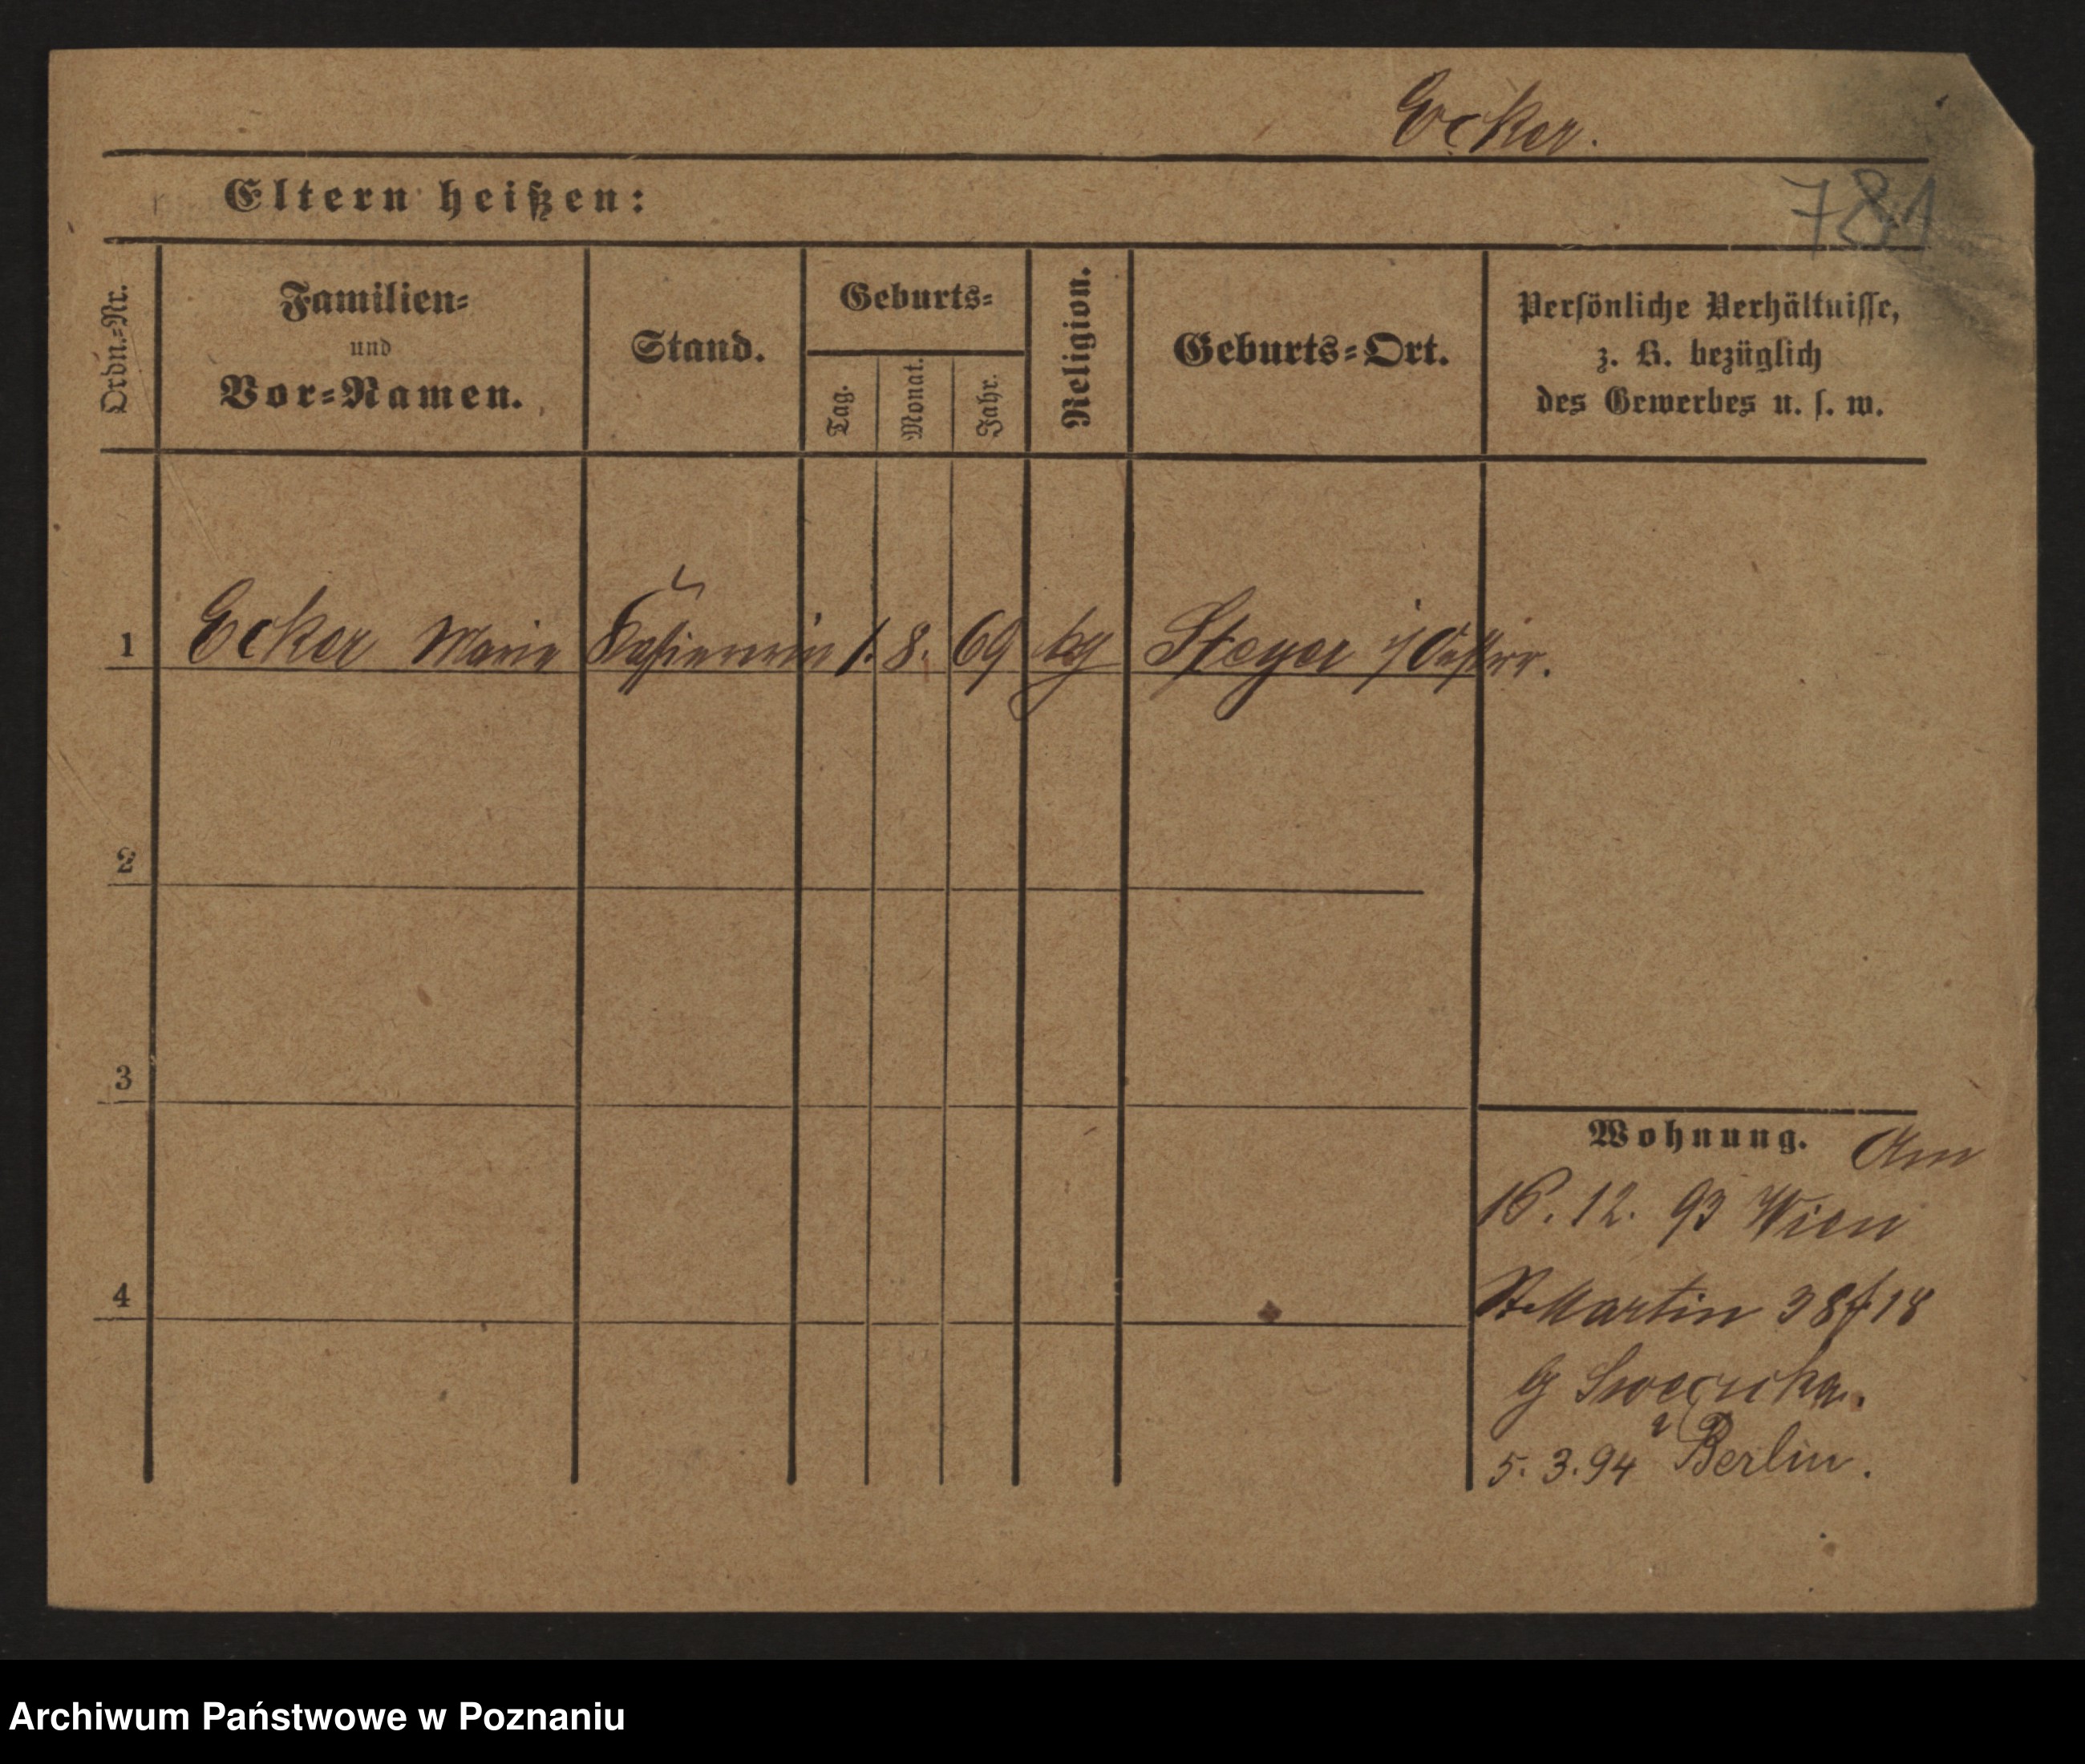 Ecker.
Eltern heißen:
781
Ordn.=Nr.
Familien=
und
Vor=Namen.
Stand.
Geburts=
Tag.
Monat.
Jahr.
Religion.
Geburts=Ort.
Persönliche Verhältnisse,
z. B. bezüglich
des Gewerbes u. s. w.
1 Ecker Marie Kassiererin 1. 8. 69 kg Steyer i/Oestrr.
2
3
4
Wohnung. Am
16. 12. 93 Wien
St Martin 38 18
Berlin.
5. 3. 94
Archiwum Państwowe w Poznaniu